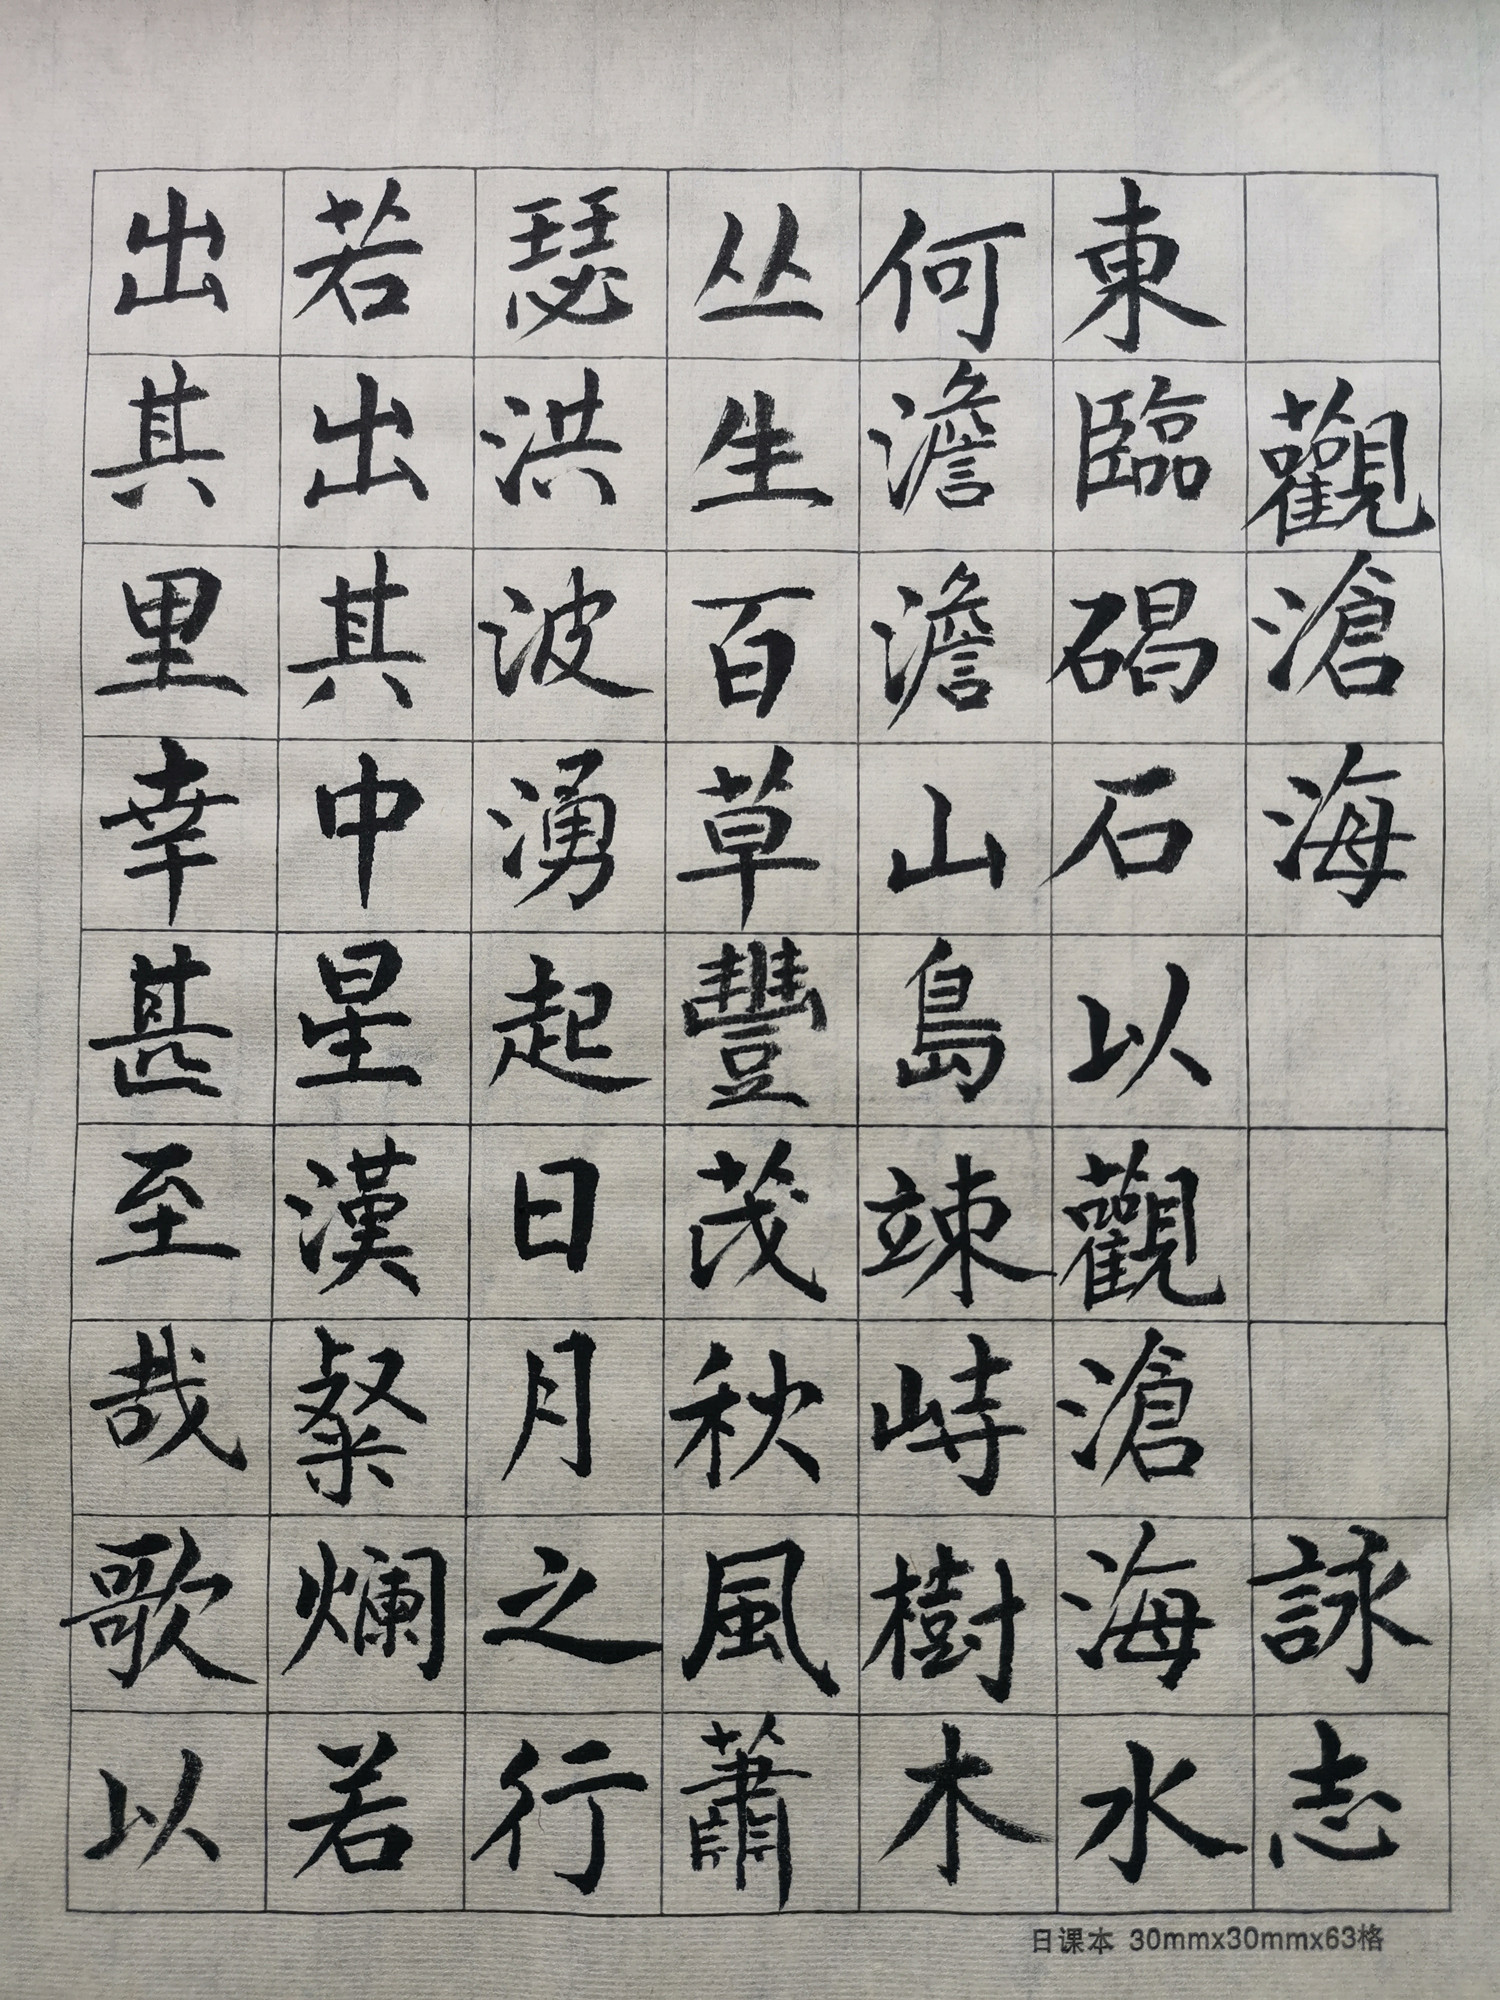 觀滄海詠志
東臨碣石以觀滄海水
何澹澹山島竦峙樹木
丛生百草豐茂秋風蕭
瑟洪波湧起日月之行
若出其中星漢粲爛若
出其里幸甚至哉歌以
日课本 30mmx30mmx63格